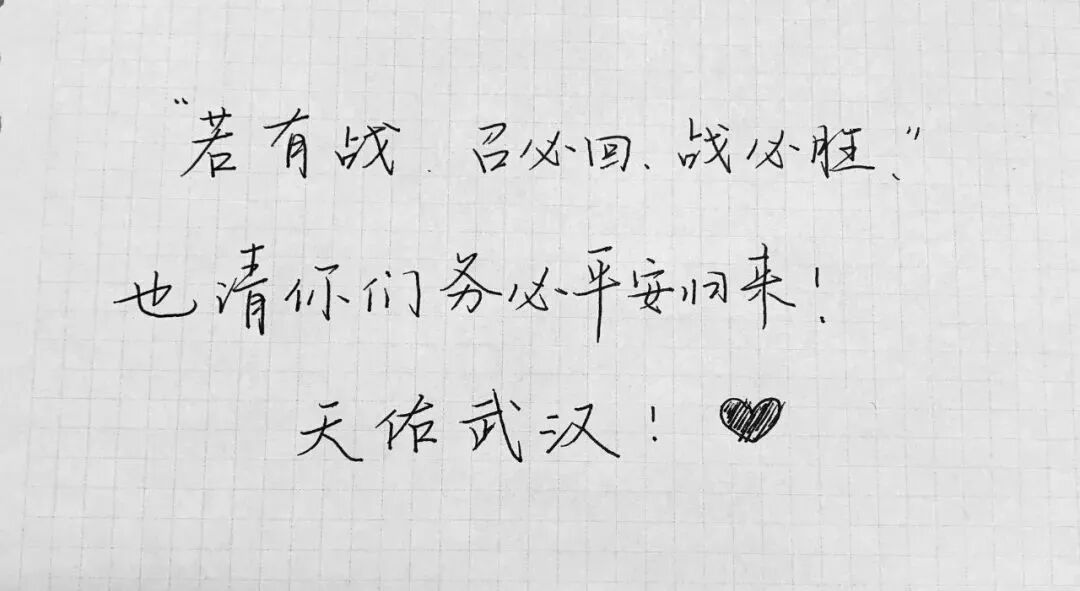 “若有战、召必回、战必胜。”
也请你们务必平安归来！
天佑武汉！♥